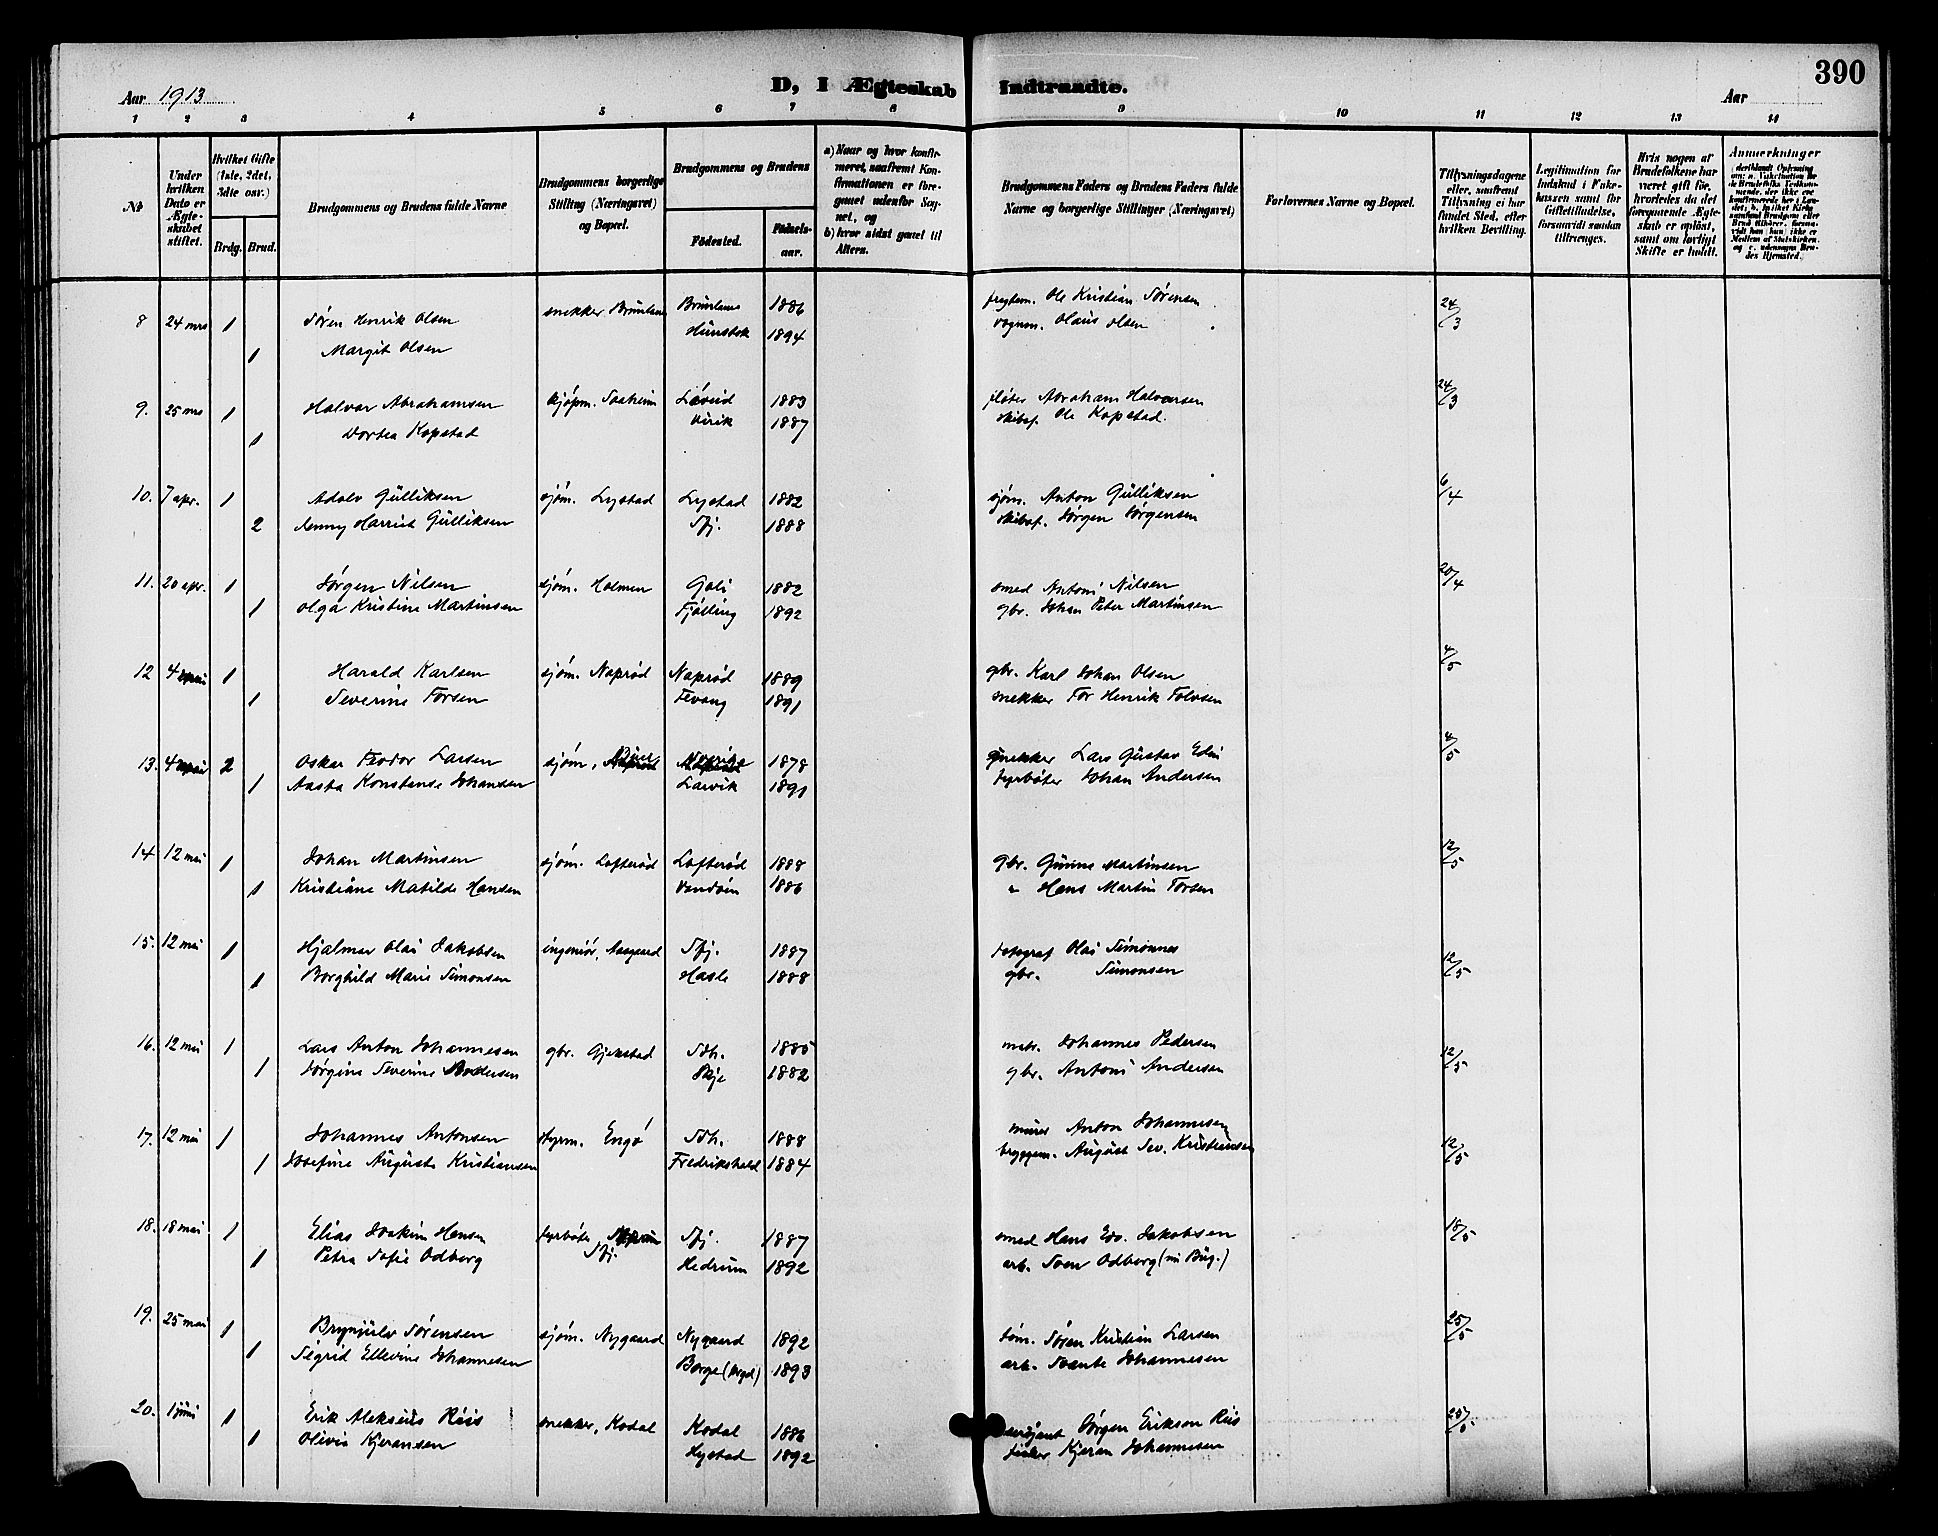 390
D, I Ægteskab Indtraadte.
Aar 1913
Aar
1 2 3 4 5 6 7 8 9 10 11 12 13 14
№
Under hvilken Dato er Ægteskabet stiftet.
Hvilket Gifte (1ste, 2det, 3die osv.)
Brdg. Brud.
Brudgommens og Brudens fulde Navne
Brudgommens borgerlige Stilling (Næringsvei) og Bopæl.
Brudgommens og Brudens
Födested.
Födselsaar.
a) Naar og hvor konfirmeret, saafremt Konfirmationen er foregaaet udenfor Sognet, og
b) hvor sidst gaaet til Alters.
Brudgommens Faders og Brudens Faders fulde Navne og borgerlige Stillinger (Næringsvei)
Forlovernes Navne og Bopæl.
Tillysningsdagene eller, saafremt Tillysning ei har fundet Sted, efter hvilken Bevilling.
Legitimation for Indskud i Enkekassen samt for Giftetilladelse, forsaavidt saadan tiltrænges.
Hvis nogen af Brudefolkene har været gift før, hvorledes da det foregaaende Ægteskab er opløst, samt om lovligt Skifte er holdt.
Anmærkninger
8 24 mrs 1 Søren Henrik Olsen snekker Brunlanes Brunlanes 1886 Ole Kristian Sørensen 24/3
1 Margit Olsen 1894 vognm. Olaus Olsen
9. 25 mrs 1 Halvor Abrahamsen kjøpm. Saaheim 1883 fløter Abraham Halvorsen 24/3
1 Dortea Kopstad Virik 1887 skibsf. Ole Kopstad.
10. 7 apr. 1 Adolv Gulliksen sjøm. Lystad Lystad 1882 sjøm. Anton Gulliksen 6/4
2 Jenny Harriet Gulliksen Sfj. 1888 skibsf. Jørgen Jørgensen
11. 20 apr. 1 Jørgen Nilsen sjøm. Holmen Goli 1882 smed Antoni Nilsen 20/4
1 Olga Kristine Martinsen Fjølling 1892 gbr. Johan Peter Martinsen
12 4 mai 1 Harald Karlsen sjøm. Naprød Naprød 1889 gbr. Karl Johan Olsen 4/5
1 Severine Torsen Fevang 1891 snekker Tor Henrik Tolvsen
13. 4 mai 2 Oskar Teodor Larsen sjøm. 1878 snekker Lars Gustav 4/5
1 Aasta Konstanse Johansen Larvik 1891 fyrbøter Johan Andersen
14 12 mai 1 Johan Martinsen sjøm. Lofterød Lofterød 1888 gbr. Martinsen 12/5
1 Kristiane Matilde Hansen 1886 " Hans Martin Torsen
15. 12 mai 1 Hjalmar Olai Jakobsen ingeniør, Aagaard Sfj. 1887 fotograf Olai 12/5
1 Borghild Marie Simonsen Hasle 1888 gbr. Simonsen
16. 12 mai 1 Lars Anton Johannesen gbr. Gjekstad Sdh. 1885 Johannes Pedersen 12/5
1 Jørgine Severine Andersen 1882 gbr. Antoni Andersen
17. 12 mai 1 Johannes Antonsen styrm. Engø Sdh. 1888 murer Anton Johannesen 12/5
1 Josefine Augusta Kristiansen Fredrikshald 1884 bryggem. August Sev. Kristiansen
18. 18 mai 1 Elias Joakim Hansen fyrbøter Sfj. Sfj. 1887 smed Hans Edv. Jakobsen 18/5
1 Petra Sofie Odberg Hedrum 1892 arb. Sven Odberg
19. 25 mai 1 Brynjulv Sørensen sjøm. Nygaard Nygaard 1892 tøm. Søren Kristian Larsen 25/5
1 Sigrid Ellevine Johannesen Borge 1893 arb. Svante Johannesen
20. 1 juni 1 Erik Aleksius Riis snekker, Kodal Kodal 1886 sersjant Jørgen Eriksen Riis 25/5
1 Olivia Kjeransen Hystad 1892 fisker Kjeran Johannesen